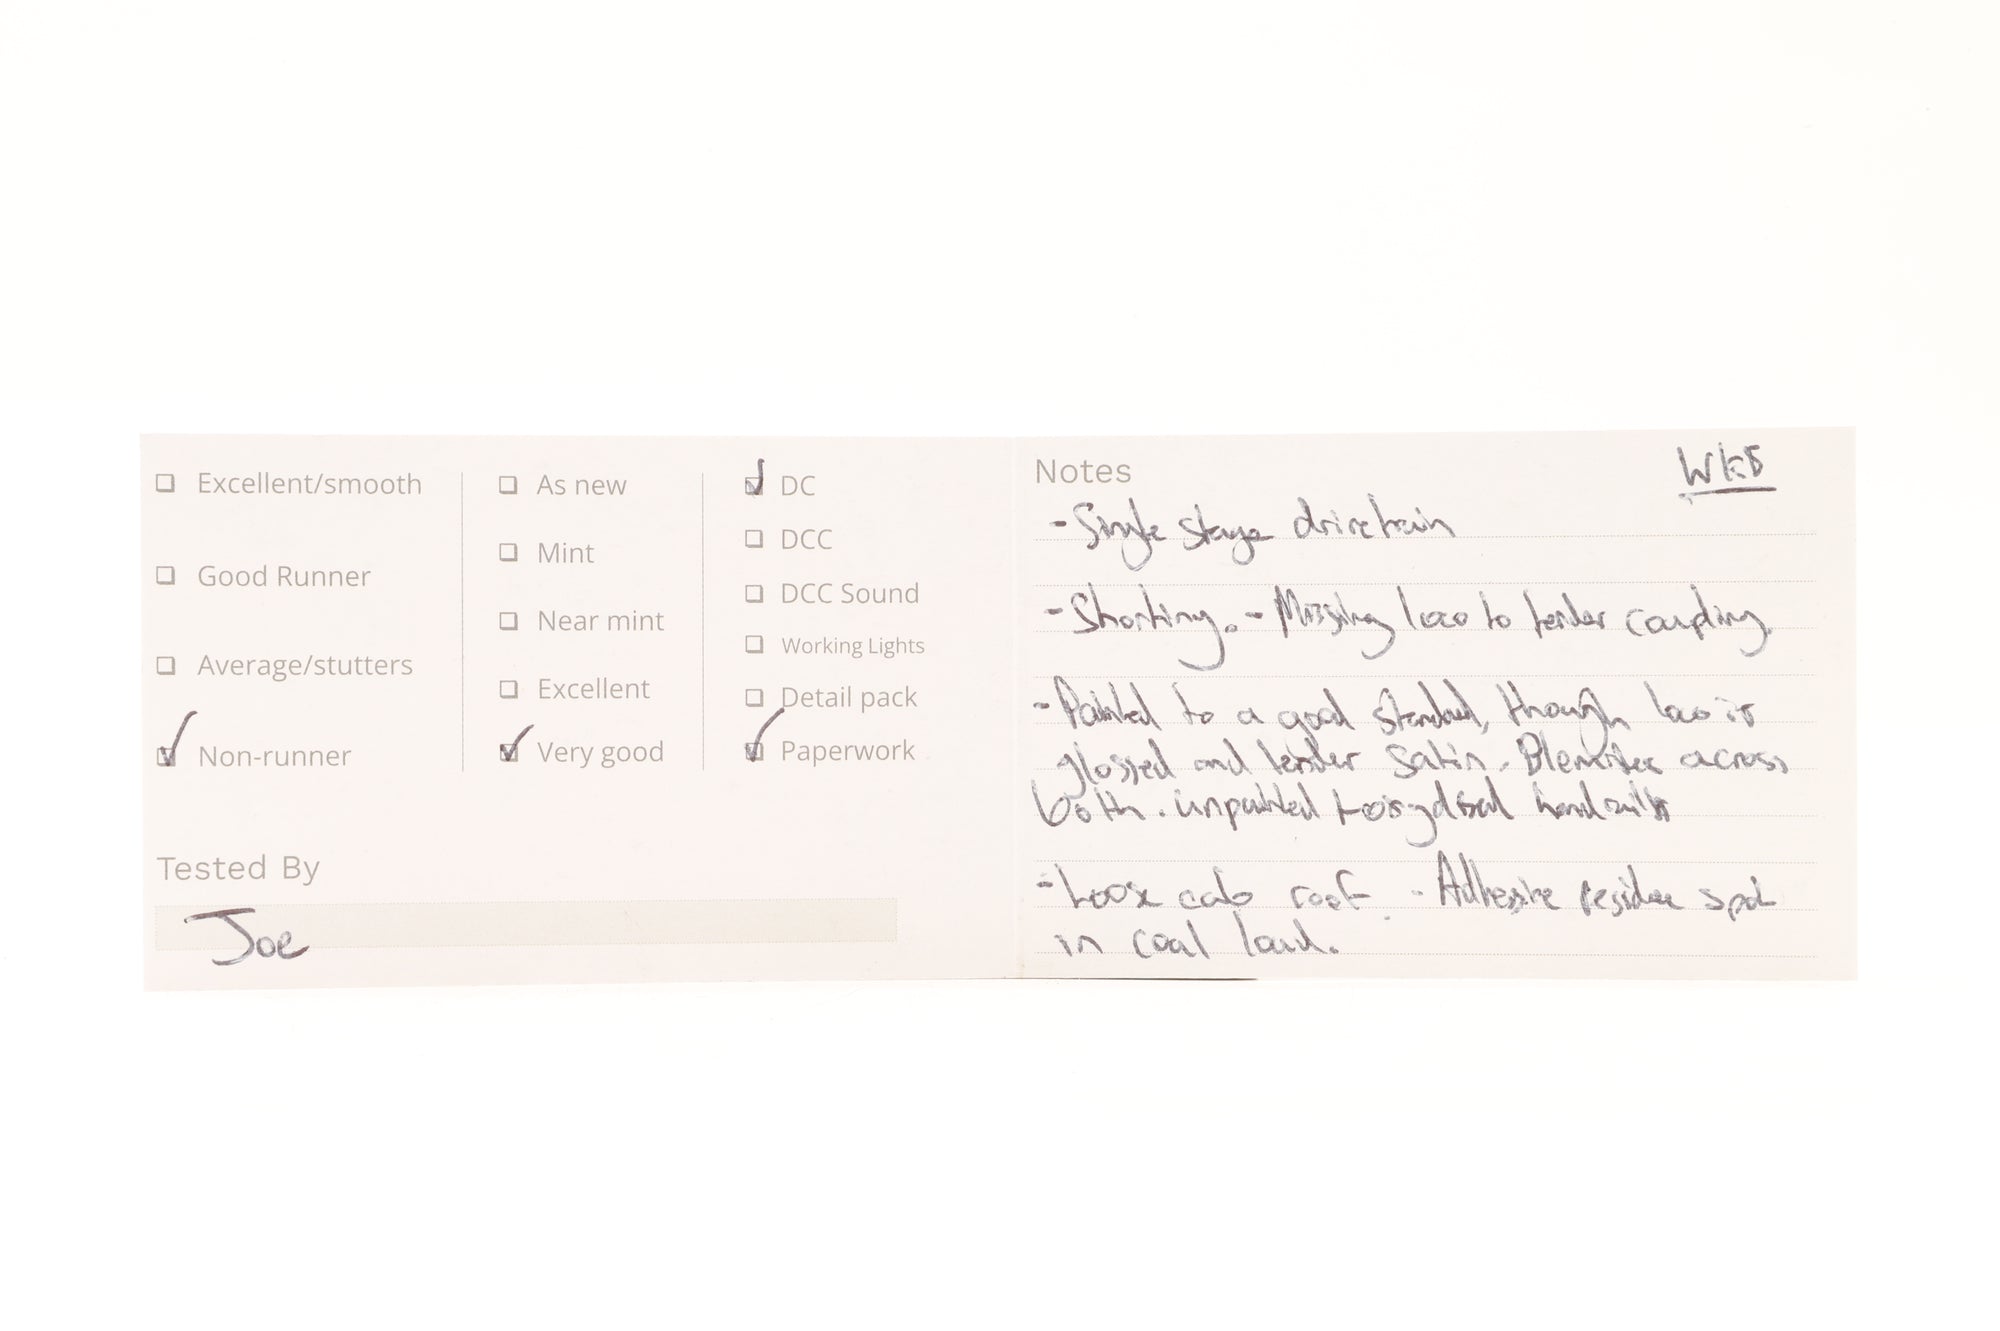 Excellent/smooth
Good Runner
Average/stutters
Non-runner
As new
Mint
Near mint
Excellent
Very good
DC
DCC
DCC Sound
Working Lights
Detail pack
Paperwork
Tested By
Joe
Notes
- Single stage drivetrain
- Shorting. - Missing loco to tender coupling.
- Painted to a good standard, though loco is
glossed and tender satin. Blemishes across
both. unpainted handrails
- Loose cab roof. - Adhesive residue spot
in coal load.